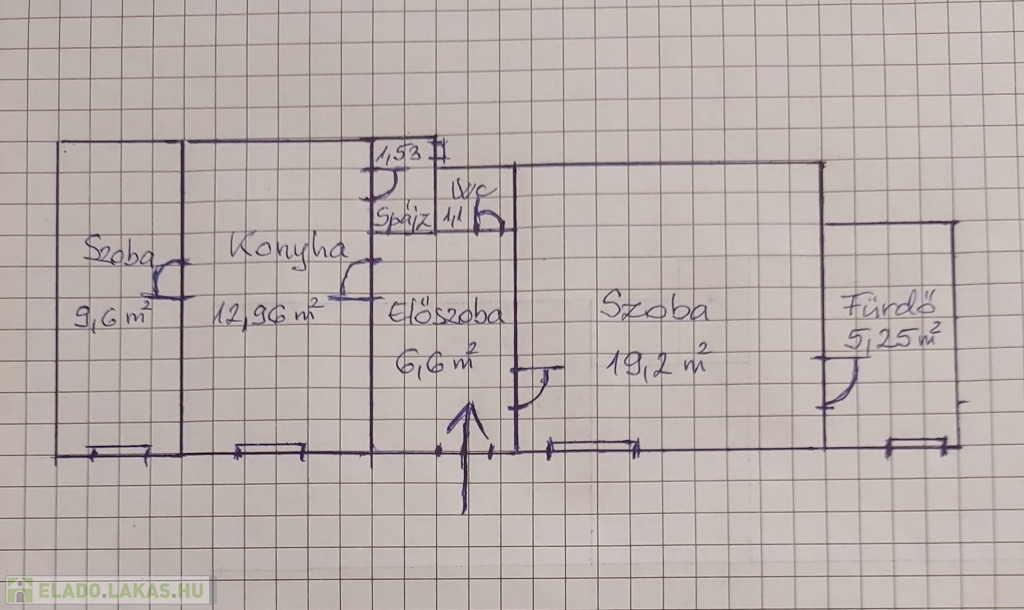 1,53
Spájz
WC
1,1
Szoba
9,6 m²
Konyha
12,96 m²
Előszoba
6,6 m²
Szoba
19,2 m²
Fürdő
5,25 m²
ELADO.LAKAS.HU